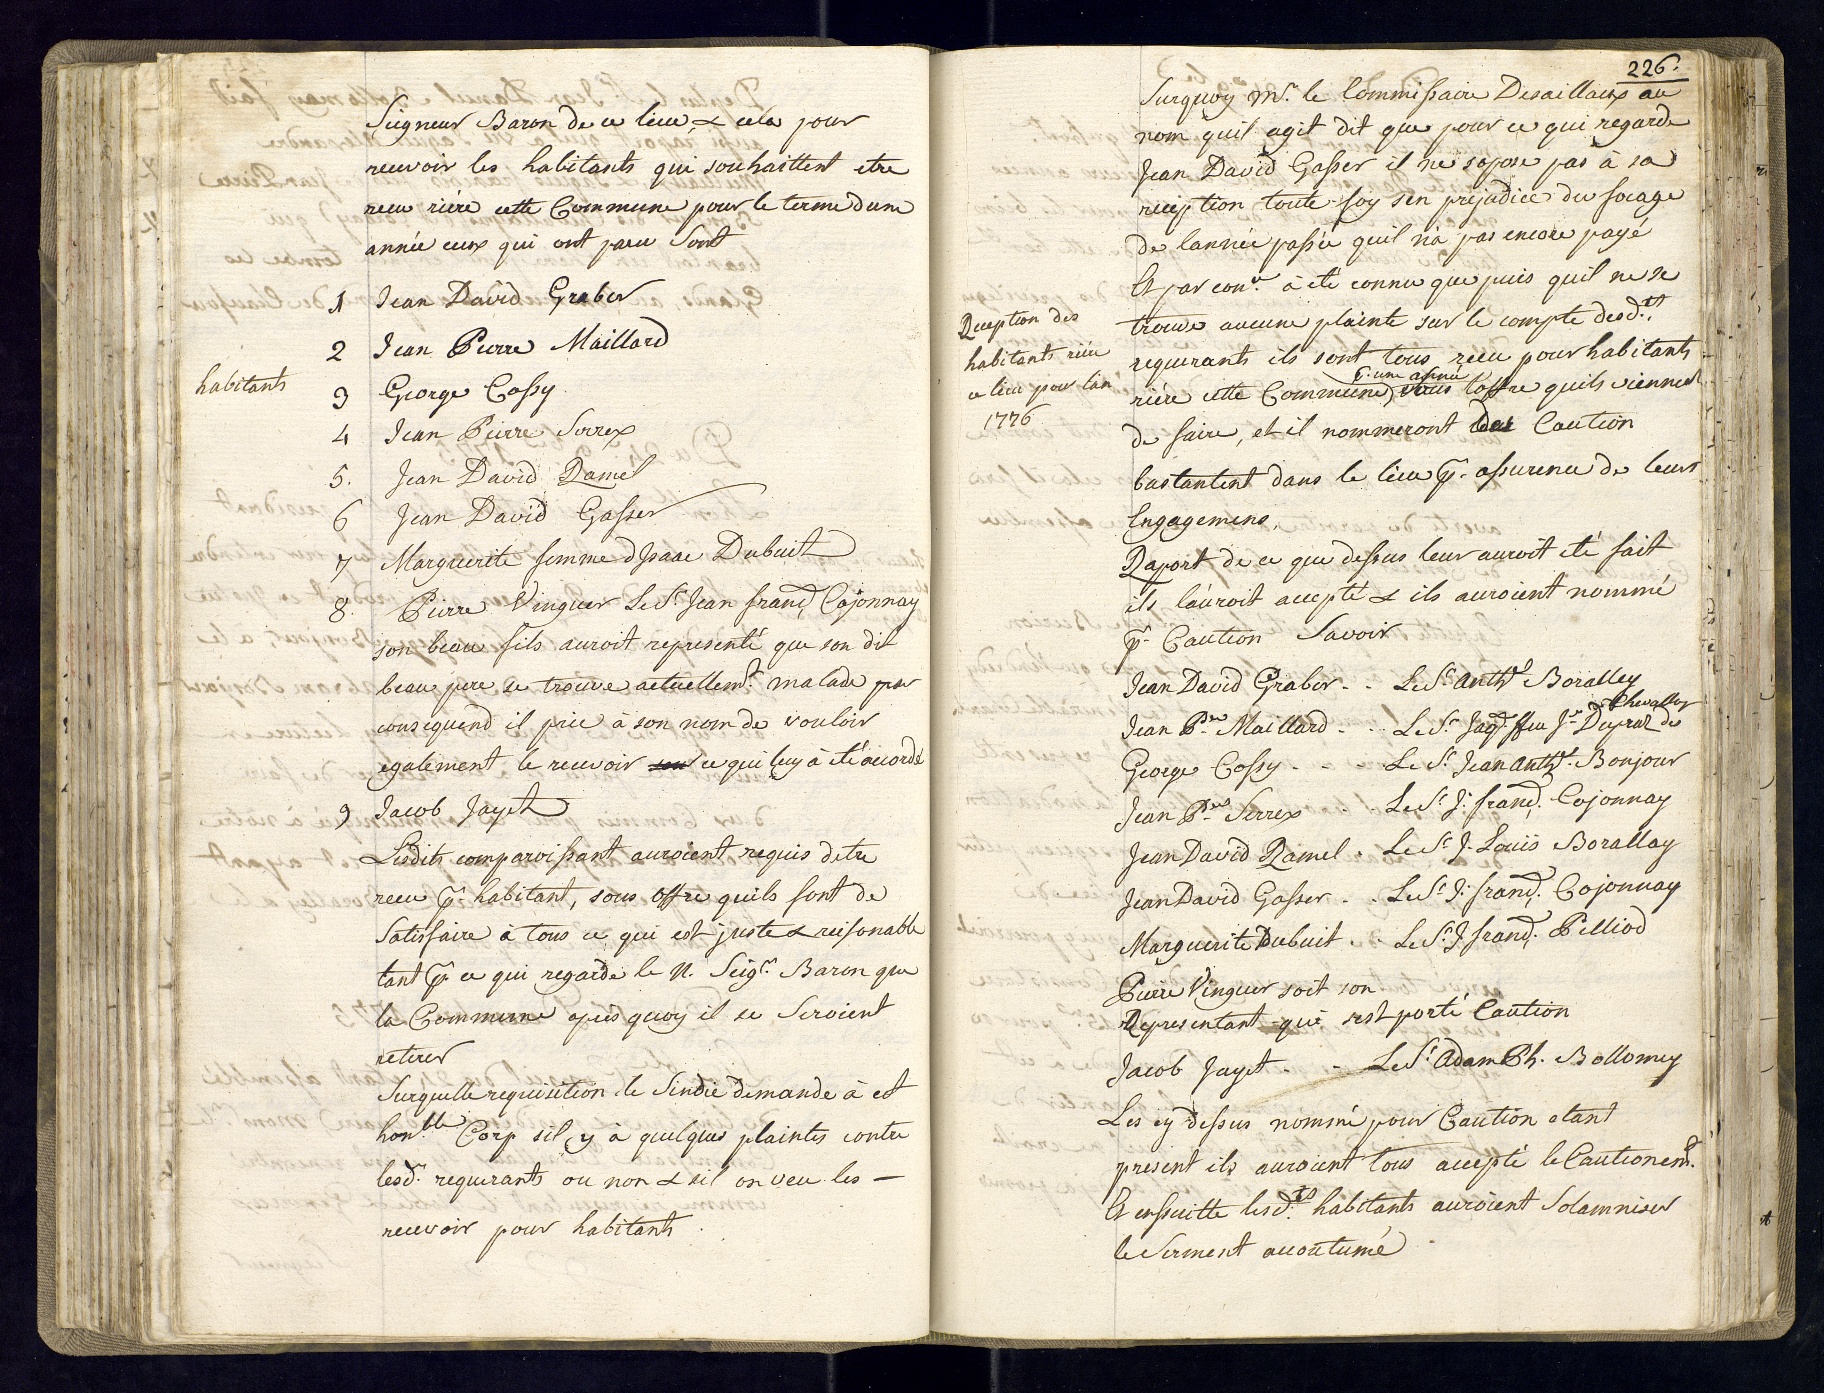 Seigneur Baron de ce lieu, & cela pour
recevoir les habitants qui souhaittent etre
recu riére cette Commune pour le terme dune
année ceux qui ont paru sont
1 Jean David Graber
2 Jean Pierre Maillard
habitants
3 George Cossy
4 Jean Pierre Serrex
5. Jean David Ramel
6 Jean David Gasser
7 Marguerite femme dIsaac Dubuit
8. Pierre Vinguer Le Sr. Jean francd. Cojonnay
son beau fils auroit representé que son dit
beau pere se trouve actuellemt. malade par
consequend il prie à son nom de vouloir
egalement le recevoir ce qui luy à été acordé
9 Jacob Jayet
Lesdits comparoissant auroient requis detre
recu pr. habitant, sous offre quils font de
Satisfaire à tous ce qui est juste & reisonable
tant pr. ce qui regarde le N. Seigr. Baron que
la Commune après quoy il se seroient
retirer
Surquelle requisition le Sindic demande à cet
honble Corp sil y à quelques plaintes contre
lesd. requerants ou non & sil on veu les -
recevoir pour habitants.
226.
Surquoy Mr. le Commissaire Desaillaux au
nom quil agit dit que pour ce qui regarde
Jean David Gasser il ne sopose pas à sa
reception toute foy sen prejudice du focage
de lannée passée quil na pas encore payé
Et par conr. à été connu que puis quil ne se
trouve aucune plainte sur le compte desdts.
Reception des
habitants riére
ce lieu pour lan
1776
requerants ils sont tous recu pour habitants
p. une année
riére cette Commune, sous loffre quils viennent
de faire, et il nommeront des Caution
bastantent dans le lieu pr. assurence de leurs
Engagemens.
Raport de ce que dessus leur auroit été fait
ils lauroit accepté & ils auroient nommé
pr. Caution Savoir
Jean David Graber - . Le Sr. Anthe Boralley
Chevalley
Jean Pre. Maillard - . Le Sr. Jaq. ffeu Je. Dupraz de
George Cossy - - - Le Sr. Jean Anthe. Bonjour
Jean Pre. Serrex - . Le Sr. J. francd. Cojonnay
Jean David Ramel . Le Sr. J. Louis Borallay
Jean David Gasser - . Le Sr. J. francd. Cojonnay
Marguerite Dubuit . . Le Sr. J. francd. Pilliod
Pierre Vinguer soit son
Representant qui sest porté Caution
Jacob Jayet - - Le Sr. Adam Ph. Bollomey
Les cy dessus nommé pour Caution etant
present ils auroient tous accepté le Cautionemt.
Et ensuitte lesdts. habitants auroient Solamniser
le Serment accoutumé.